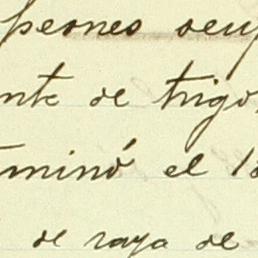 peones ocup
nte de trigo,
minó el 1
de raya de